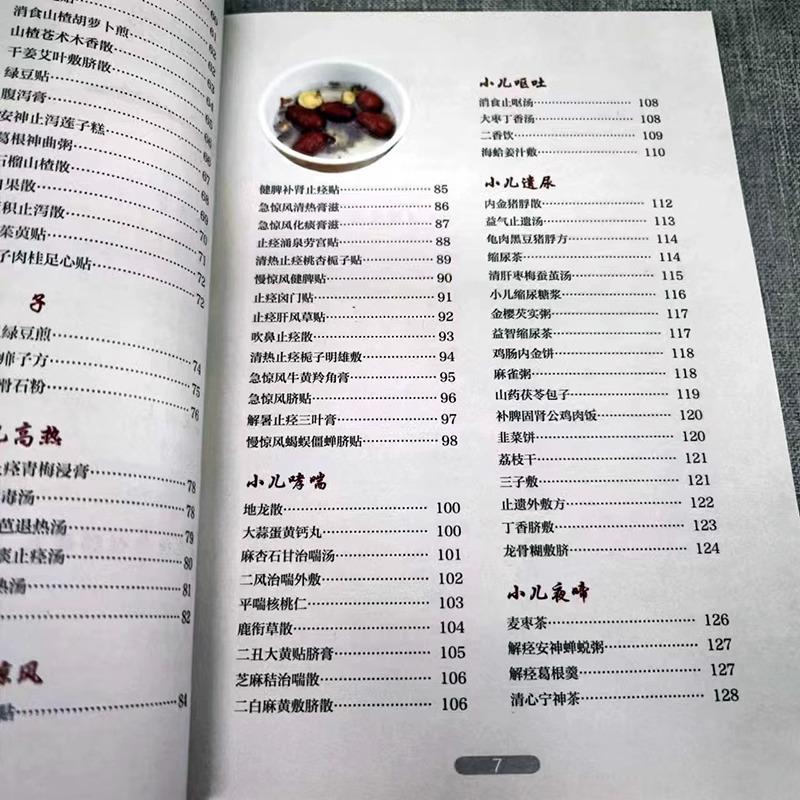 消食山楂胡萝卜煎 61
山楂苍术木香散 62
干姜艾叶敷脐散 62
绿豆贴 64
腹泻膏 64
安神止泻莲子糕 65
葛根神曲粥 66
石榴山楂散 67
果散 68
积止泻散 69
茱萸贴 70
子肉桂足心贴 71
72
72
子
绿豆煎 74
子方 75
滑石粉 76
儿高热
止痉青梅浸膏 78
毒汤 78
芭退热汤 79
痰止痉汤 80
热汤 81
82
惊风
贴 84
健脾补肾止痉贴 85
急惊风清热膏滋 86
急惊风化痰膏滋 87
止痉涌泉劳宫贴 88
清热止痉桃杏栀子贴 89
慢惊风健脾贴 90
止痉囟门贴 91
止痉肝风草贴 92
吹鼻止痉散 93
清热止痉栀子明雄敷 94
急惊风牛黄羚角膏 95
急惊风脐贴 96
解暑止痉三叶膏 97
慢惊风蝎蜈僵蝉脐贴 98
小儿哮喘
地龙散 100
大蒜蛋黄钙丸 100
麻杏石甘治喘汤 101
二风治喘外敷 102
平喘核桃仁 103
鹿衔草散 104
二丑大黄贴脐膏 105
芝麻秸治喘散 106
二白麻黄敷脐散 106
小儿呕吐
消食止呕汤 108
大枣丁香汤 108
二香饮 109
海蛤姜汁敷 110
小儿遗尿
内金猪脬散 112
益气止遗汤 113
龟肉黑豆猪脬方 114
缩尿茶 114
清肝枣梅蚕茧汤 115
小儿缩尿糖浆 116
金樱芡实粥 117
益智缩尿茶 117
鸡肠内金饼 118
麻雀粥 118
山药茯苓包子 119
补脾固肾公鸡肉饭 120
韭菜饼 120
荔枝干 121
三子敷 121
止遗外敷方 122
丁香脐敷 123
龙骨糊敷脐 124
小儿夜啼
麦枣茶 126
解痉安神蝉蜕粥 127
解痉葛根羹 127
清心宁神茶 128
7